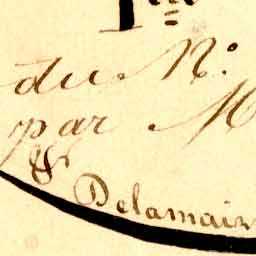 du N.º
par M
& Delamair